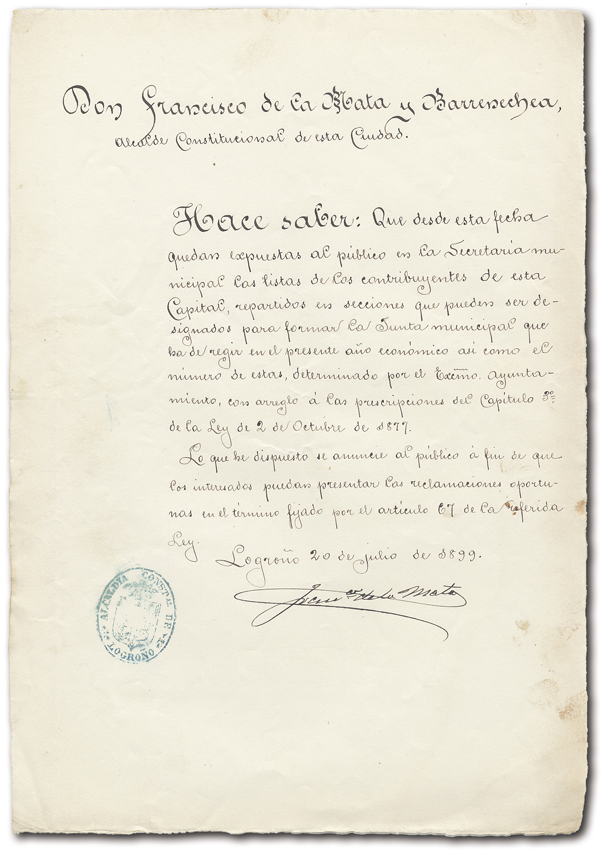 Don Francisco de la Mata y Barrenechea,
Alcalde Constitucional de esta Ciudad.
Hace saber: Que desde esta fecha
quedan expuestas al público en la Secretaría mu-
nicipal las listas de los contribuyentes de esta
Capital, repartidos en secciones que pueden ser de-
signados para formar la Junta municipal que
ha de regir en el presente año económico así como el
número de estas, determinado por el Excmo. Ayunta-
miento, con arreglo á las prescripciones del Capítulo 3º
de la Ley de 2 de Octubre de 1877.
Lo que he dispuesto se anuncie al público á fin de que
los interesados puedan presentar las reclamaciones oportu-
nas en el término fijado por el artículo 67 de la referida
Ley.
Logroño 20 de julio de 1899.
Franco. de la Mata
ALCALDIA CONSTAL DE
LOGROÑO